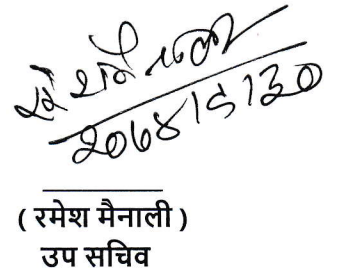 २०७४।५।३०
( रमेश मैनाली )
उप सचिव